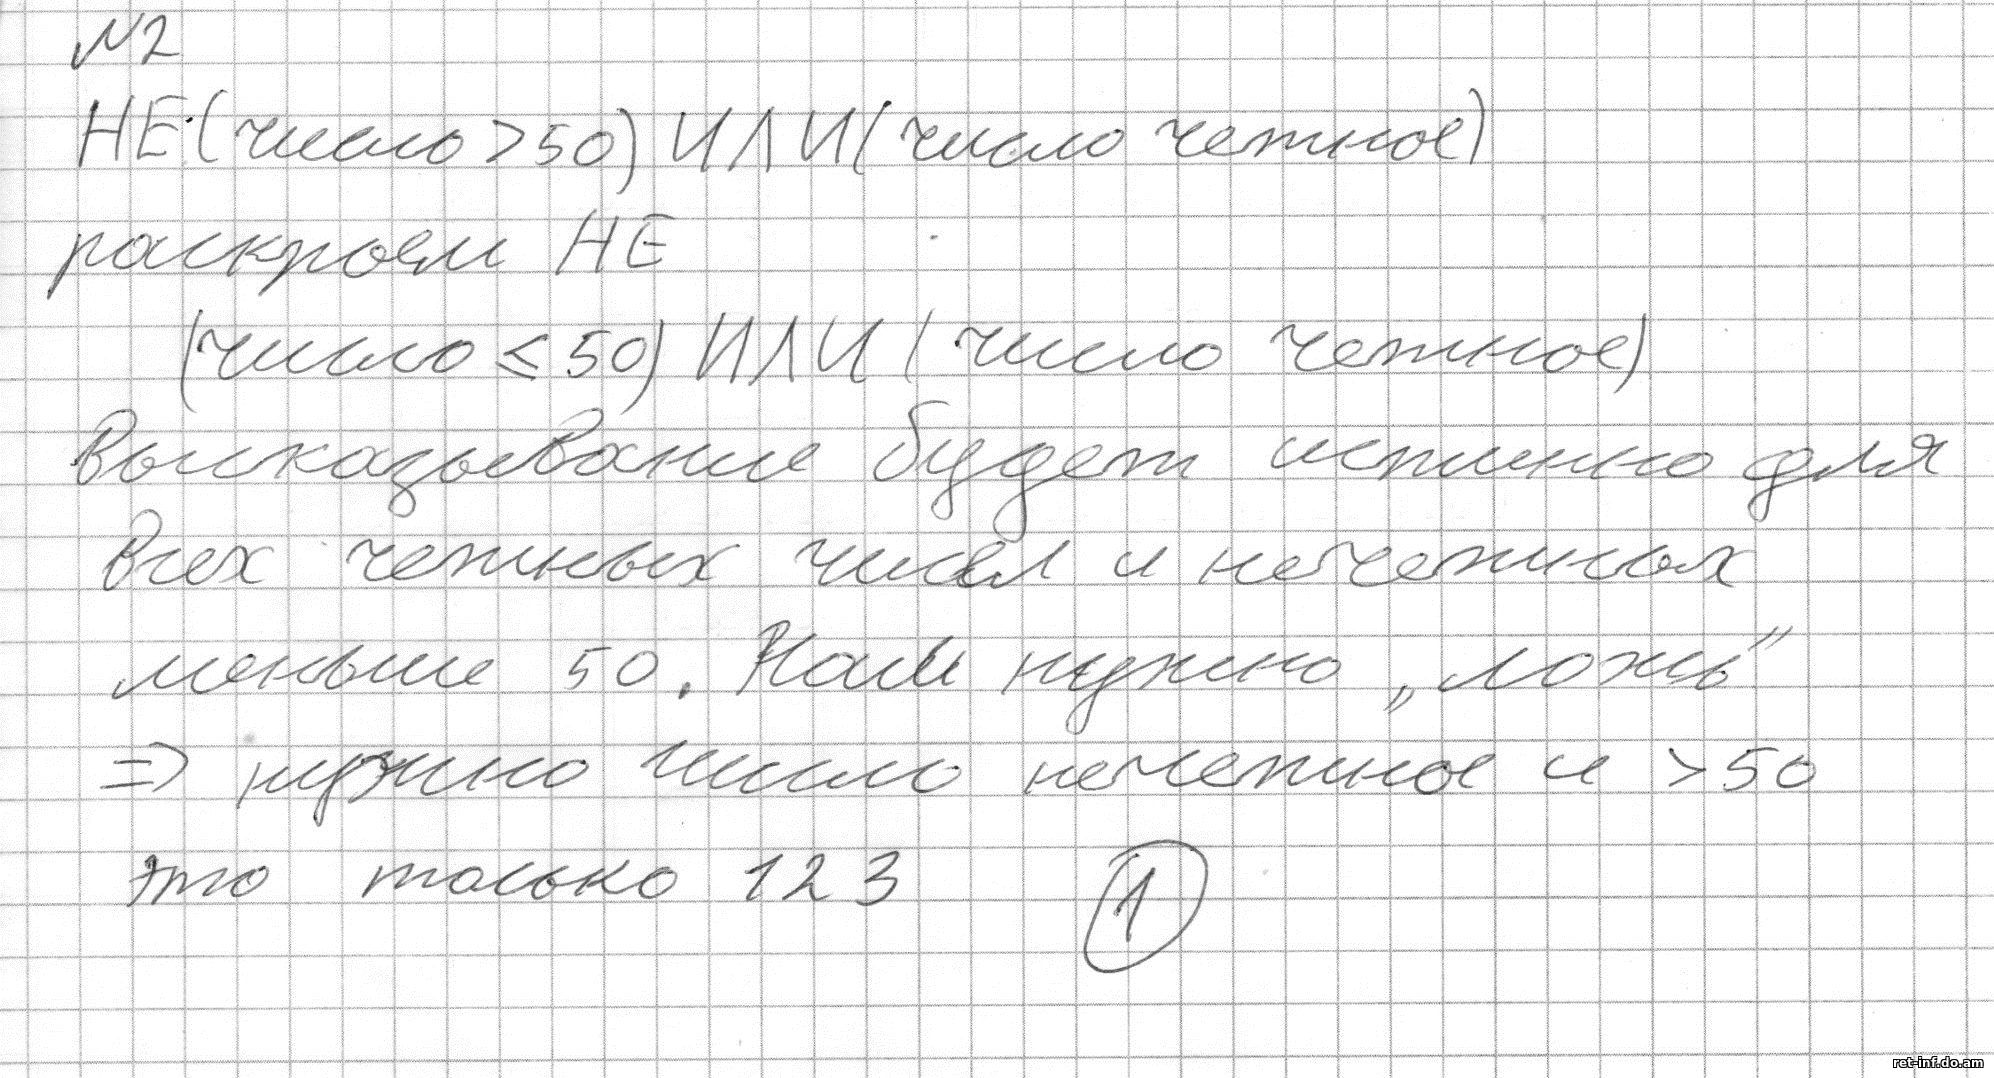 №2
НЕ(число>50) ИЛИ(число четное)
раскроем НЕ
(число ≤ 50) ИЛИ (число четное)
Высказывание будет истинно для
всех четных чисел и нечетных
меньше 50. Нам нужно „ложь”
=> нужно число нечетное и >50
это только 123 1
ret-inf.do.am